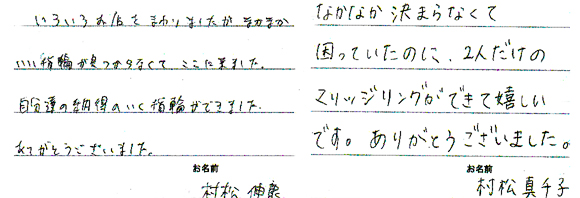 いろいろお店をまわりましたが なかなか
いい指輪が見つからなくて ここに来ました。
自分達の納得のいく指輪ができました。
ありがとうございました。
お名前
村松 伸
なかなか決まらなくて
困っていたのに、2人だけの
マリッジリングができて嬉しい
です。ありがとうございました。
お名前
村松真千子